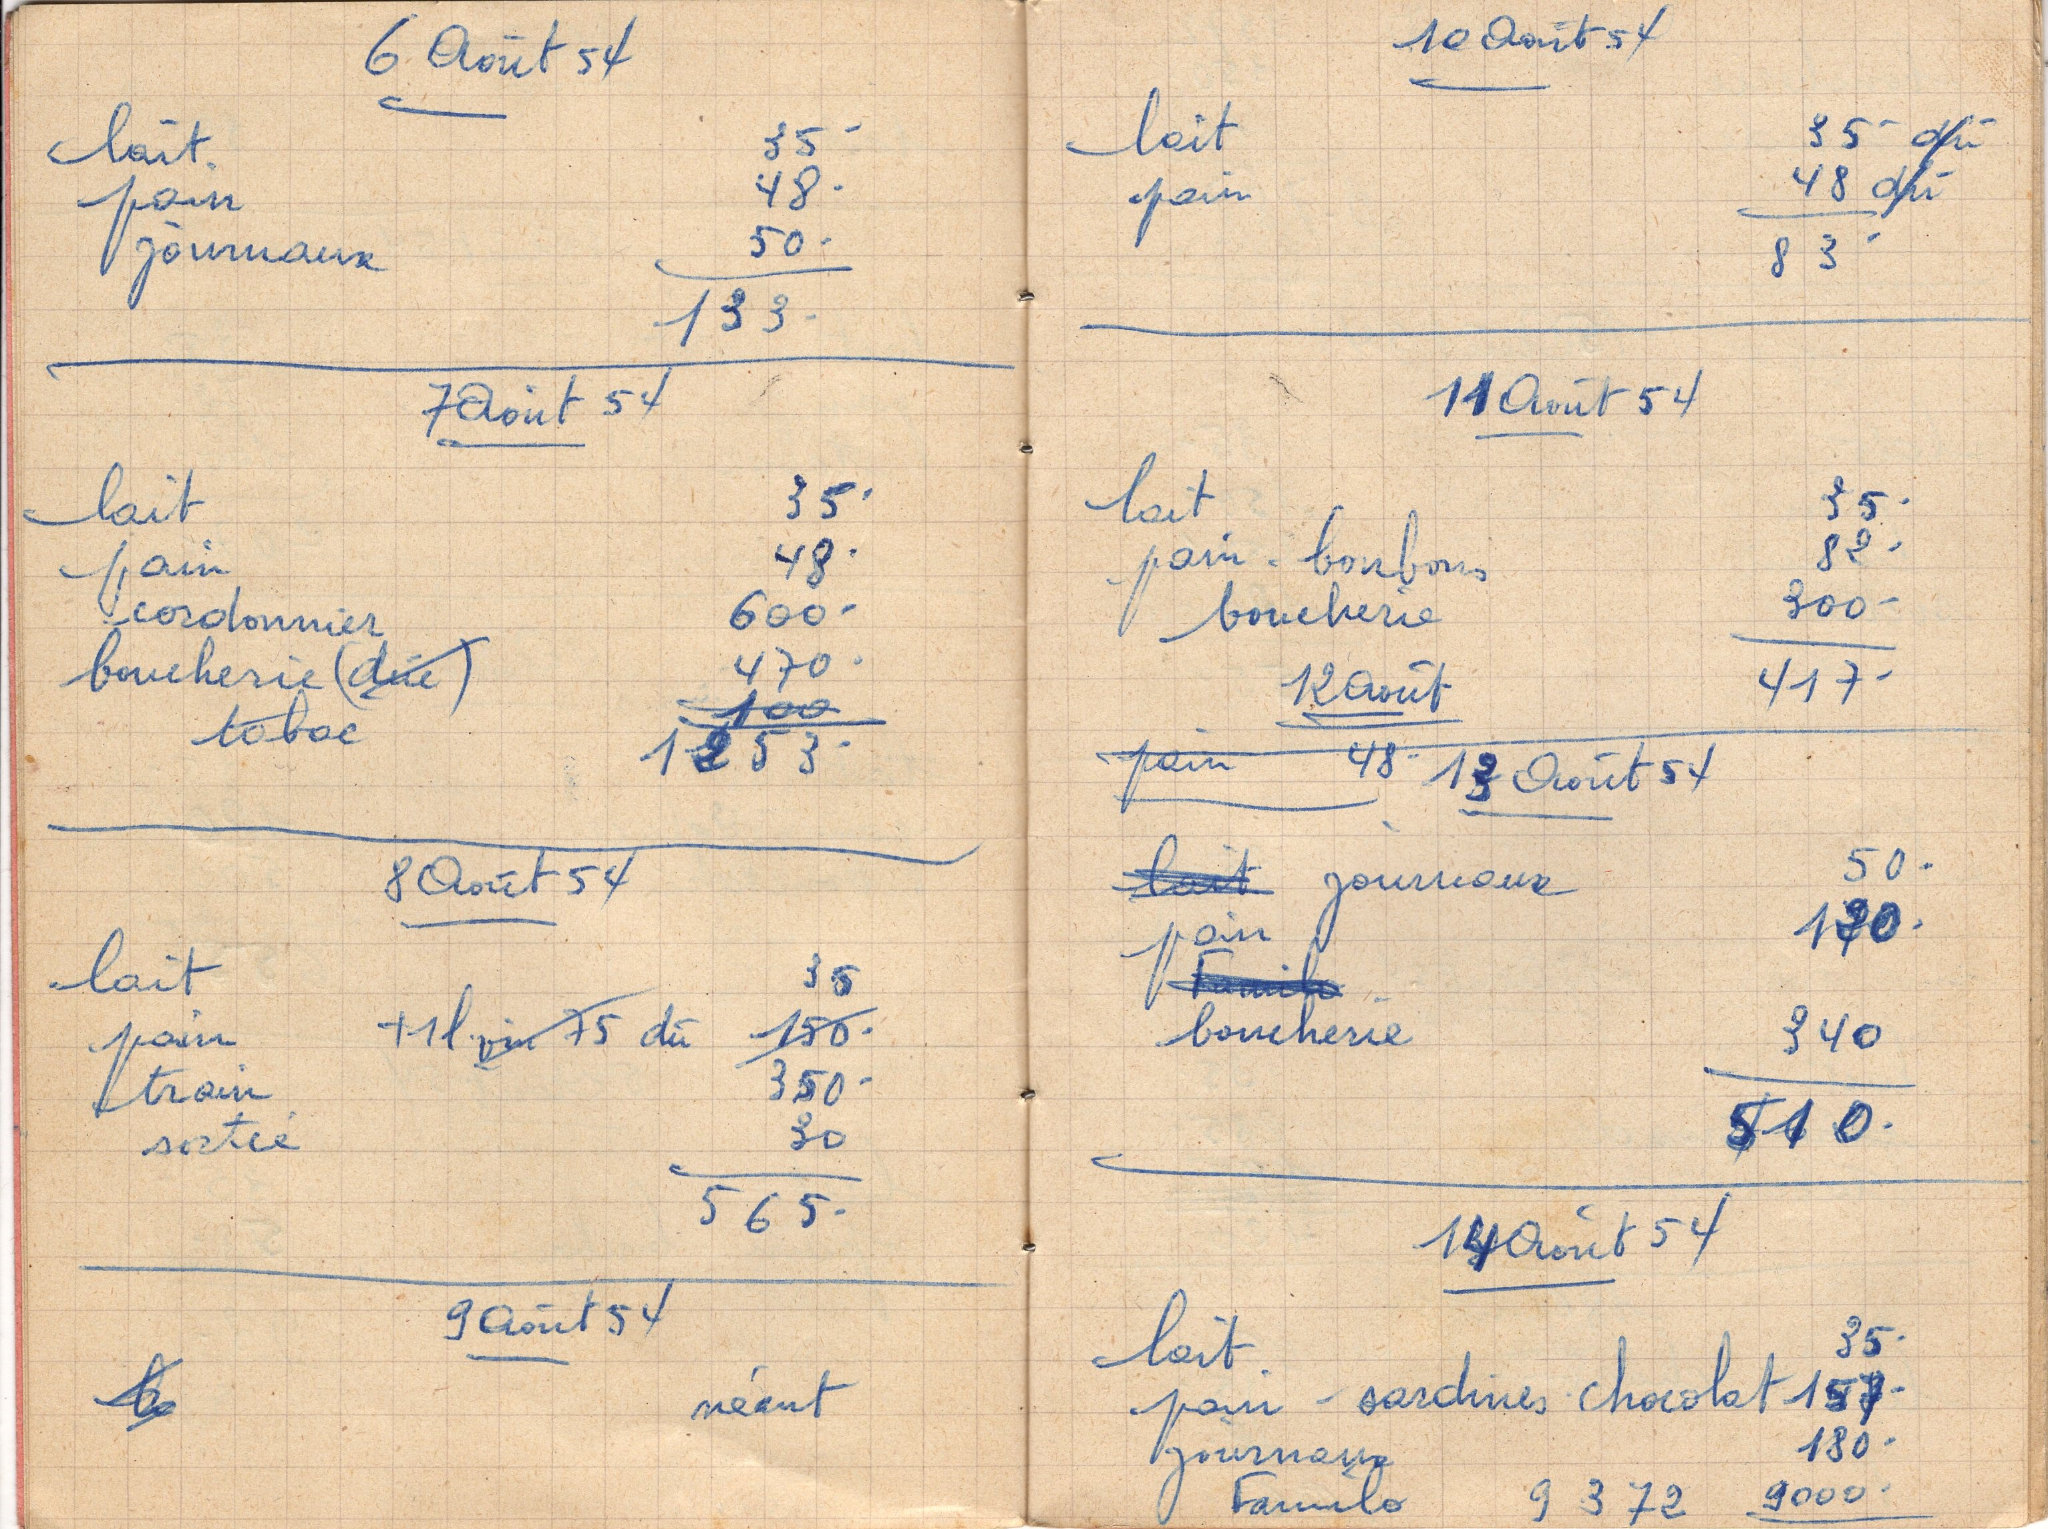 6 Août 54
lait. 35-
pain 48.
journaux 50.
133.
7 Août 54
lait 35.
pain 48.
cordonnier 600-
boucherie (dûe) 470.
tabac 100
1253.
8 Août 54
lait 35
pain +1l. vin 75 dû 150.
train 350-
sortie 30
565.
9 Août 54
néant
10 Août 54
lait 35- dû
pain 48 dû
83-
11 Août 54
lait 35.
pain - bonbons 82-
boucherie 300-
417-
12 Août
pain 48.
13 Août 54
lait journaux 50.
pain
Familo
boucherie 340
510.
14 Août 54
lait. 35.
pain - sardines. chocolat 157-
journaux 180.
Familo 9372 9000.